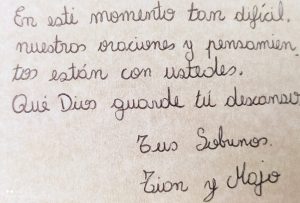 En este momento tan difícil,
nuestras oraciones y pensamien-
tos están con ustedes.
Qué Dios guarde tú descanso
Tus Sobrinos.
Tion y Majo